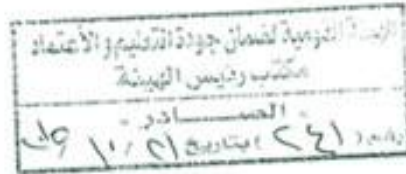 الهيئة القومية لضمان جودة التعليم والأعتماد
مكتب رئيس الهيئة
الصـــــادر
رقم ( ٢٤١ ) بتاريخ ٢١ / ١٠ /